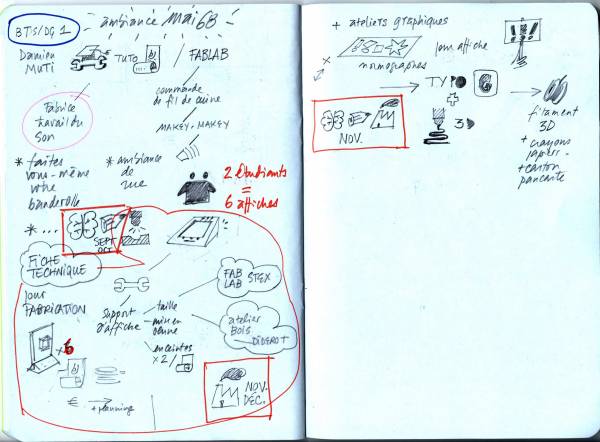 BTS/DG 1
ambiance Mai 68
Damien
MUTI
TUTO
FABLAB
commande
de fil de cuivre
MAKEY-MAKEY
Fabrice
travail du
son
* faites
vous-même
votre
banderolle
* ambiance
de
rue
2 étudiants
=
6 affiches
* ...
SEPT
OCT
FICHE
TECHNIQUE
jour
FABRICATION
support
d'affiche
taille
mise en
œuvre
enceintes
x2/
FAB
LAB STEX
atelier
BOIS
DIDEROT
+6
€
+ planning
NOV.
DEC.
+ ateliers graphiques
normographes
TYPO G
+
3D
NOV.
filament
3D
+ crayons
papier
+ carton
pancarte